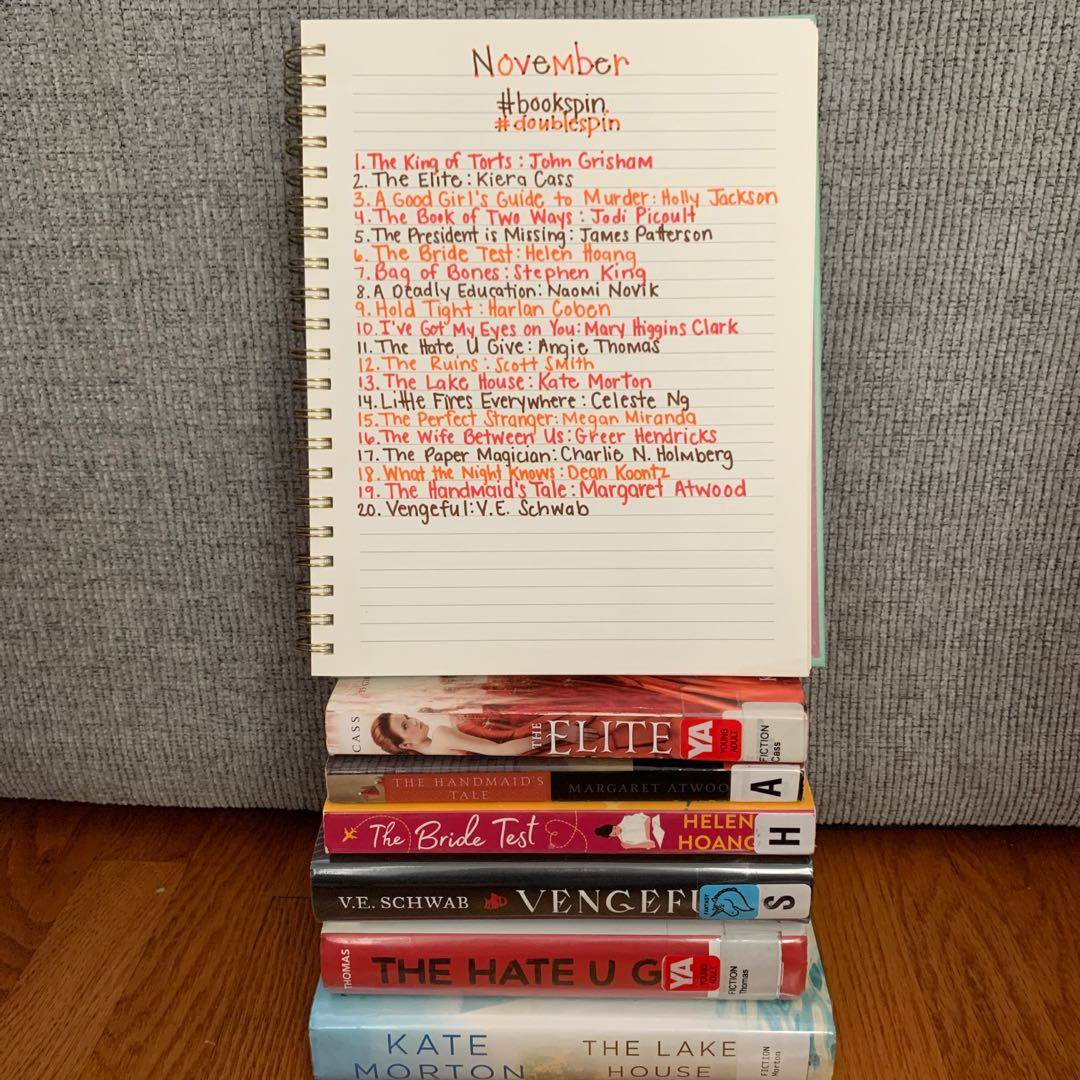 November
#bookspin
#doublespin
1. The King of Torts : John Grisham
2. The Elite : Kiera Cass
3. A Good Girl's Guide to Murder : Holly Jackson
4. The Book of Two Ways : Jodi Picoult
5. The President is Missing : James Patterson
6. The Bride Test : Helen Hoang
7. Bag of Bones : Stephen King
8. A Deadly Education : Naomi Novik
9. Hold Tight : Harlan Coben
10. I've Got My Eyes on You : Mary Higgins Clark
11. The Hate U Give : Angie Thomas
12. The Ruins : Scott Smith
13. The Lake House : Kate Morton
14. Little Fires Everywhere : Celeste Ng
15. The Perfect Stranger : Megan Miranda
16. The Wife Between Us : Greer Hendricks
17. The Paper Magician : Charlie N. Holmberg
18. What the Night Knows : Dean Koontz
19. The Handmaid's Tale : Margaret Atwood
20. Vengeful : V.E. Schwab
CASS THE ELITE YA YOUNG ADULT FICTION Cass
THE HANDMAID'S MARGARET ATWOO A
TALE
The Bride Test HELEN H
HOANG
V.E. SCHWAB VENGEFU FANTASY S
THOMAS THE HATE U G YA YOUNG ADULT FICTION Thomas
KATE THE LAKE FICTION
MORTON HOUSE Morton